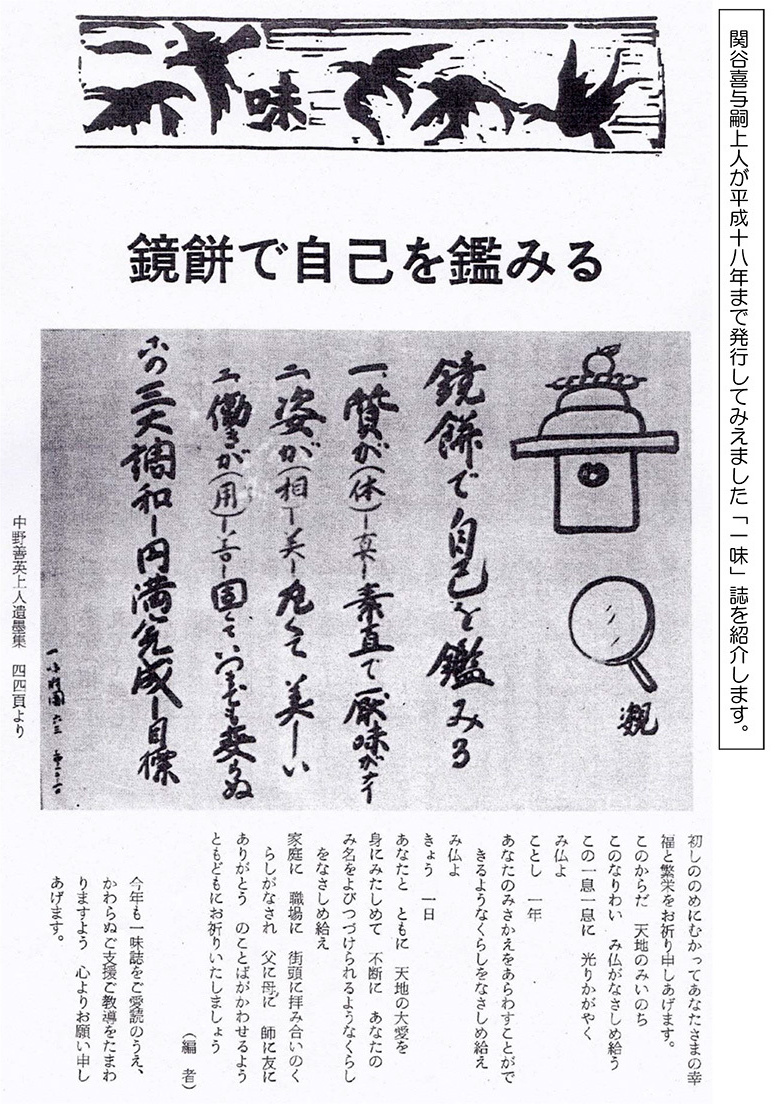 関谷喜与嗣上人が平成十八年まで発行してみえました「一味」誌を紹介します。
一味
鏡餅で自己を鑑みる
鏡餅で自己を鑑みる
一、質が(体)―真―素直で厭味がナイ
二、姿が(相)―美―丸くて美しい
三、働きが(用)―善―固くていつまでも変らぬ
この三大調和―円満完成―目標
中野善英上人遺墨集 四四頁より
初しののめにむかってあなたさまの幸
福と繁栄をお祈り申しあげます。
このからだ 天地のみいのち
このなりわい み仏がなさしめ給う
この一息一息に 光りかがやく
み仏よ
ことし 一年
あなたのみさかえをあらわすことがで
きるようなくらしをなさしめ給え
み仏よ
きょう 一日
あなたと ともに 天地の大愛を
身にみたしめて 不断に あなたの
み名をよびつづけられるようなくらし
をなさしめ給え
家庭に 職場に 街頭に拝み合いのく
らしがなされ 父に母に 師に友に
ありがとう のことばがかわせるよう
ともどもにお祈りいたしましょう
(編 者)
今年も一味誌をご愛読のうえ、
かわらぬご支援ご教導をたまわ
りますよう 心よりお願い申し
あげます。